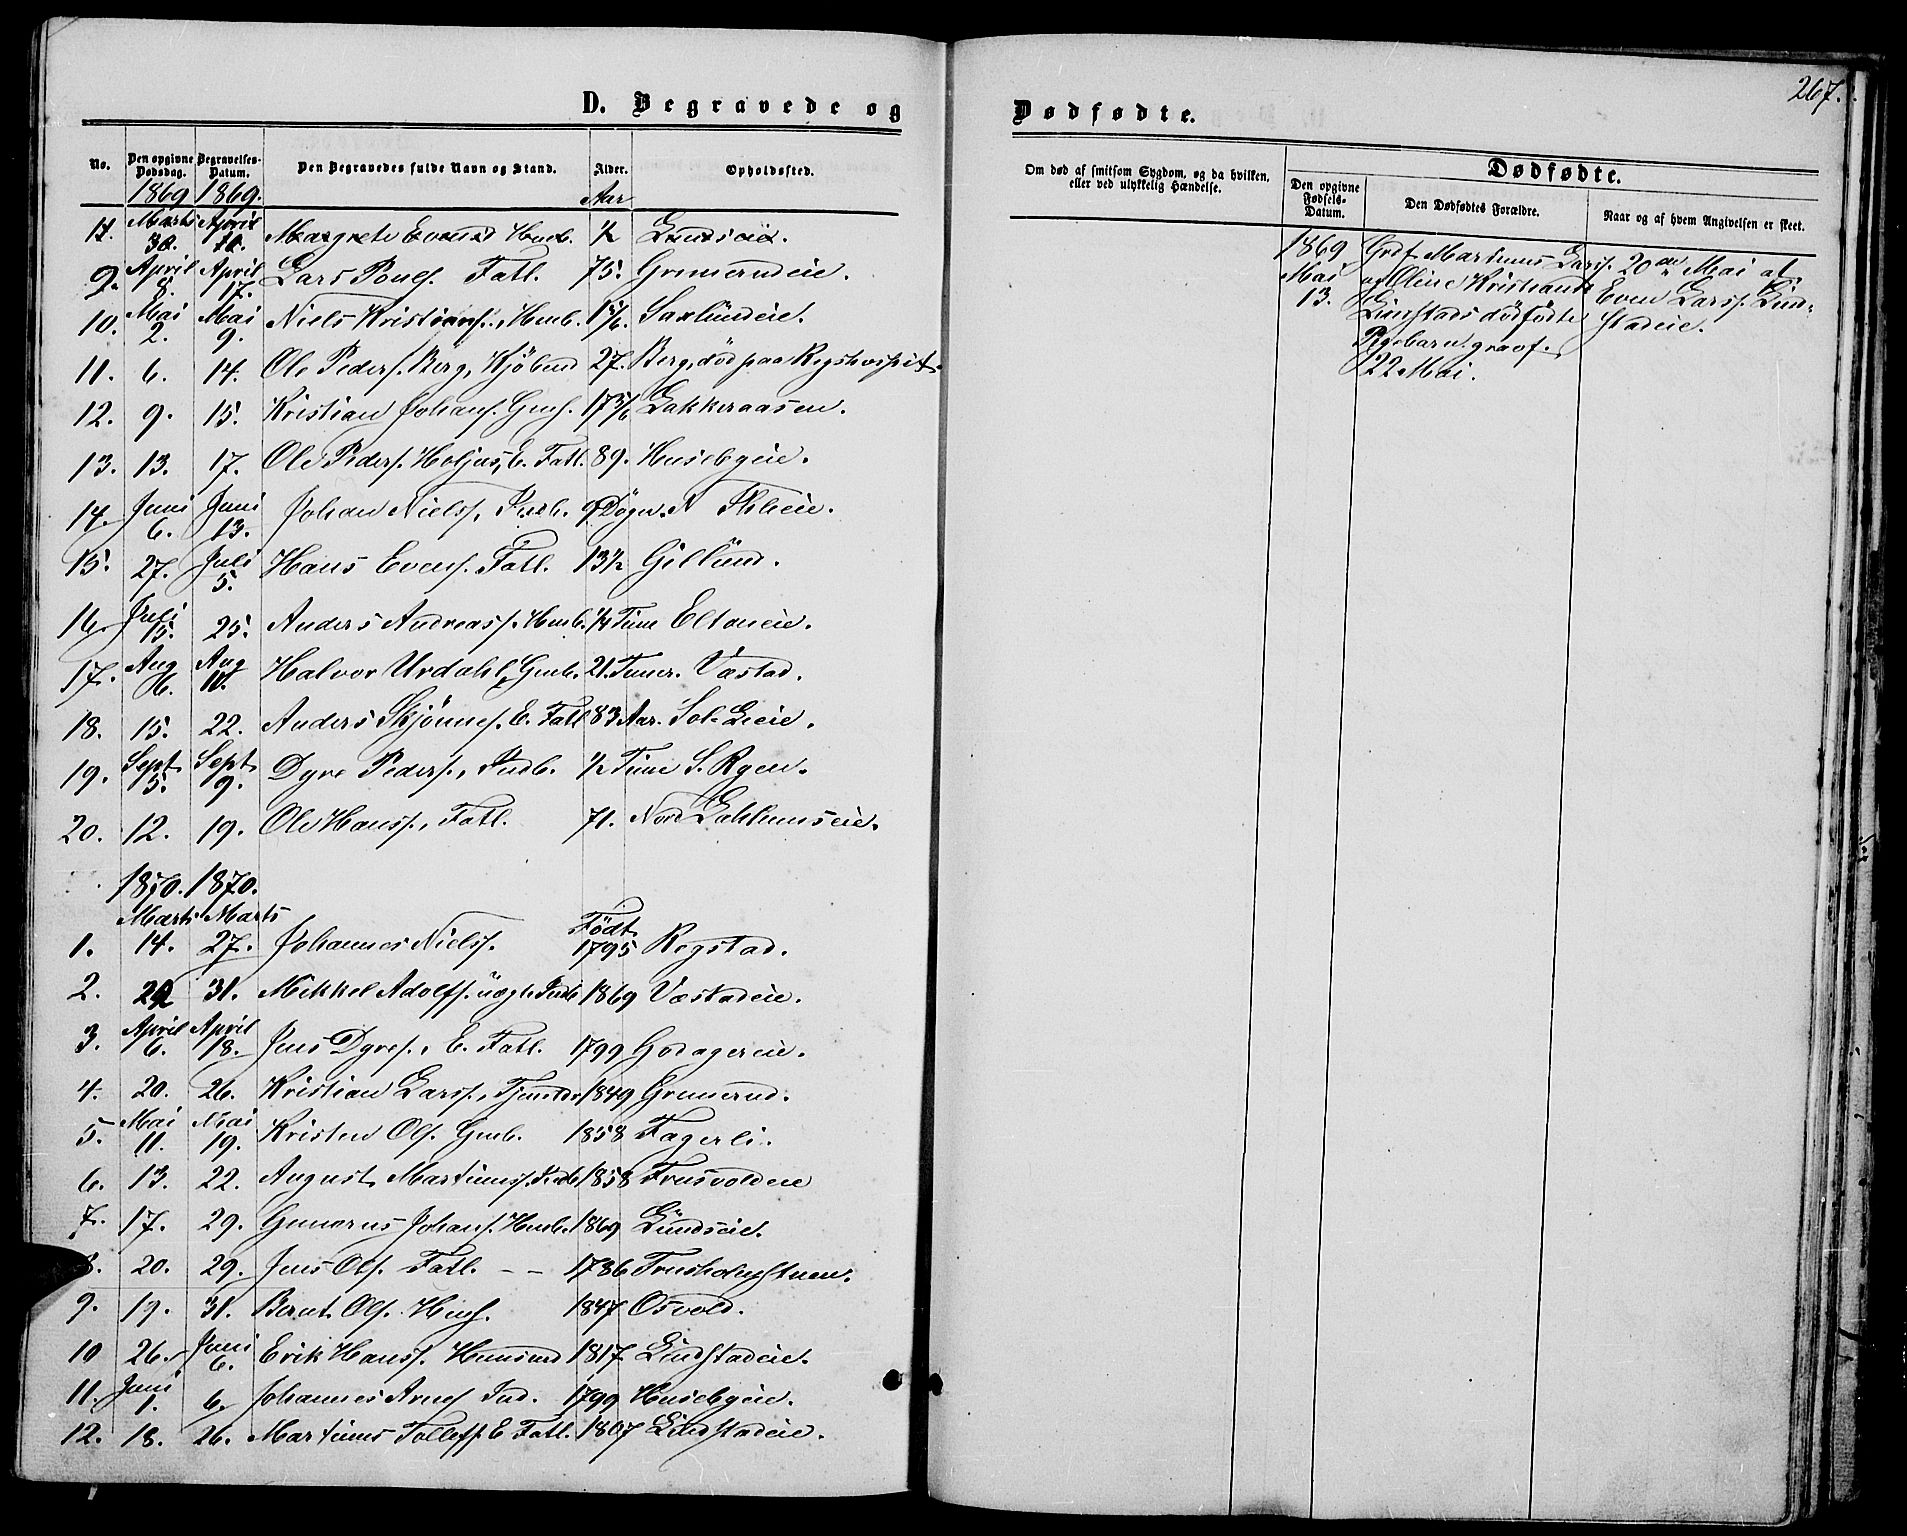 267.
D. Begravede og
Dødfødte.
No. Den opgivne Dødsdag. Begravelses-Datum. Den Begravedes fulde Navn og Stand. Alder. Opholdssted.
1869 1869. Aar
Marts 30. April Margrete Evensd Hmb. 1/2 Lundseie.
9. April 8. April 17. Lars Pouls. Fatl. 75. Grimerudeie.
10. Mai 2. Mai 9. Niels Kristians., Hmb. Saxlundeie.
11. 6. 14. Ole Peders. Berg, Kjöbmd 27. Berg, död paa Rigshospit.
12. 9. 15. Kristian Johans. Gms. Lakkeraasen.
13. 13. 17. Ole Peders. E. Fatl. 89. Husebyeie.
14. Juni 6. Juni 13. Johan Niels., Indb. 9 Dögn. N
15. 27. Juli 5. Hans Evens. Fatl. 13 1/2 Gillund.
16. Juli 15. 25. Anders Andreass. Hmb. 1/4 Time Eltoneie.
17. Aug 6. Aug Halvor Urdahl, Gmb. 21. Timer. Væstad.
18. 15. 22. Anders Skjönnes. E. Fatl 83 Aar. Sol-Lieie.
19. Sept. 5. Sept. 9. Dyre Peders., Indb. 1/2 Time S. Ryen.
20. 12. 19. Ole Hanss., Fatl. 71. Nord Dahlumseie.
1870. 1870.
Marts Marts Födt
1. 14. 27. Johannes Niels. 1795 Rogstad.
2. 22 31. Mikkel Adolfs. uægte Indb 1869 Væstadeie.
3. April 6. April 18. Jens Dyres., E. Fatl. 1799 Godagereie.
4. 20. 26. Kristian Larss., Tjenstdr 1849 Grimerud.
5. Mai 11. Mai 19. Kristen Ols. Gmb. 1858 Fagerli.
6. 13. 22. August Martinuss. Indb 1858 Frusvoldeie
7. 17. 29. Gunerius Johans. Hmb. 1869 Lundseie.
8. 20. 29. Jens Ols. Fatl. – – 1786
9. 19. 31. Bernt Ols. Hms. 1847 Osvold.
10 26. Juni 6. Erik Hanss. Hmsmd 1817 Lindstadeie.
11. Juni 1. 6. Johannes Arnes. Ind. 1799 Husebyeie.
12. 18. 26. Martinus Tollefs. E Fatl. 1807 Lindstadeie.
Om død af smitsom Sygdom, og da hvilken, eller ved ulykkelig Hændelse.
Dødfødte.
Den opgivne Fødsels-Datum. Den Dødfødtes Forældre. Naar og af hvem Angivelsen er skeet.
1869 Martinus Larss. 20de Mai af
Mai og Oline Kristiansd Even Larss. Lind-
13. Linstads dödfödte stadeie.
Pigebarn. gravf.
22 Mai.